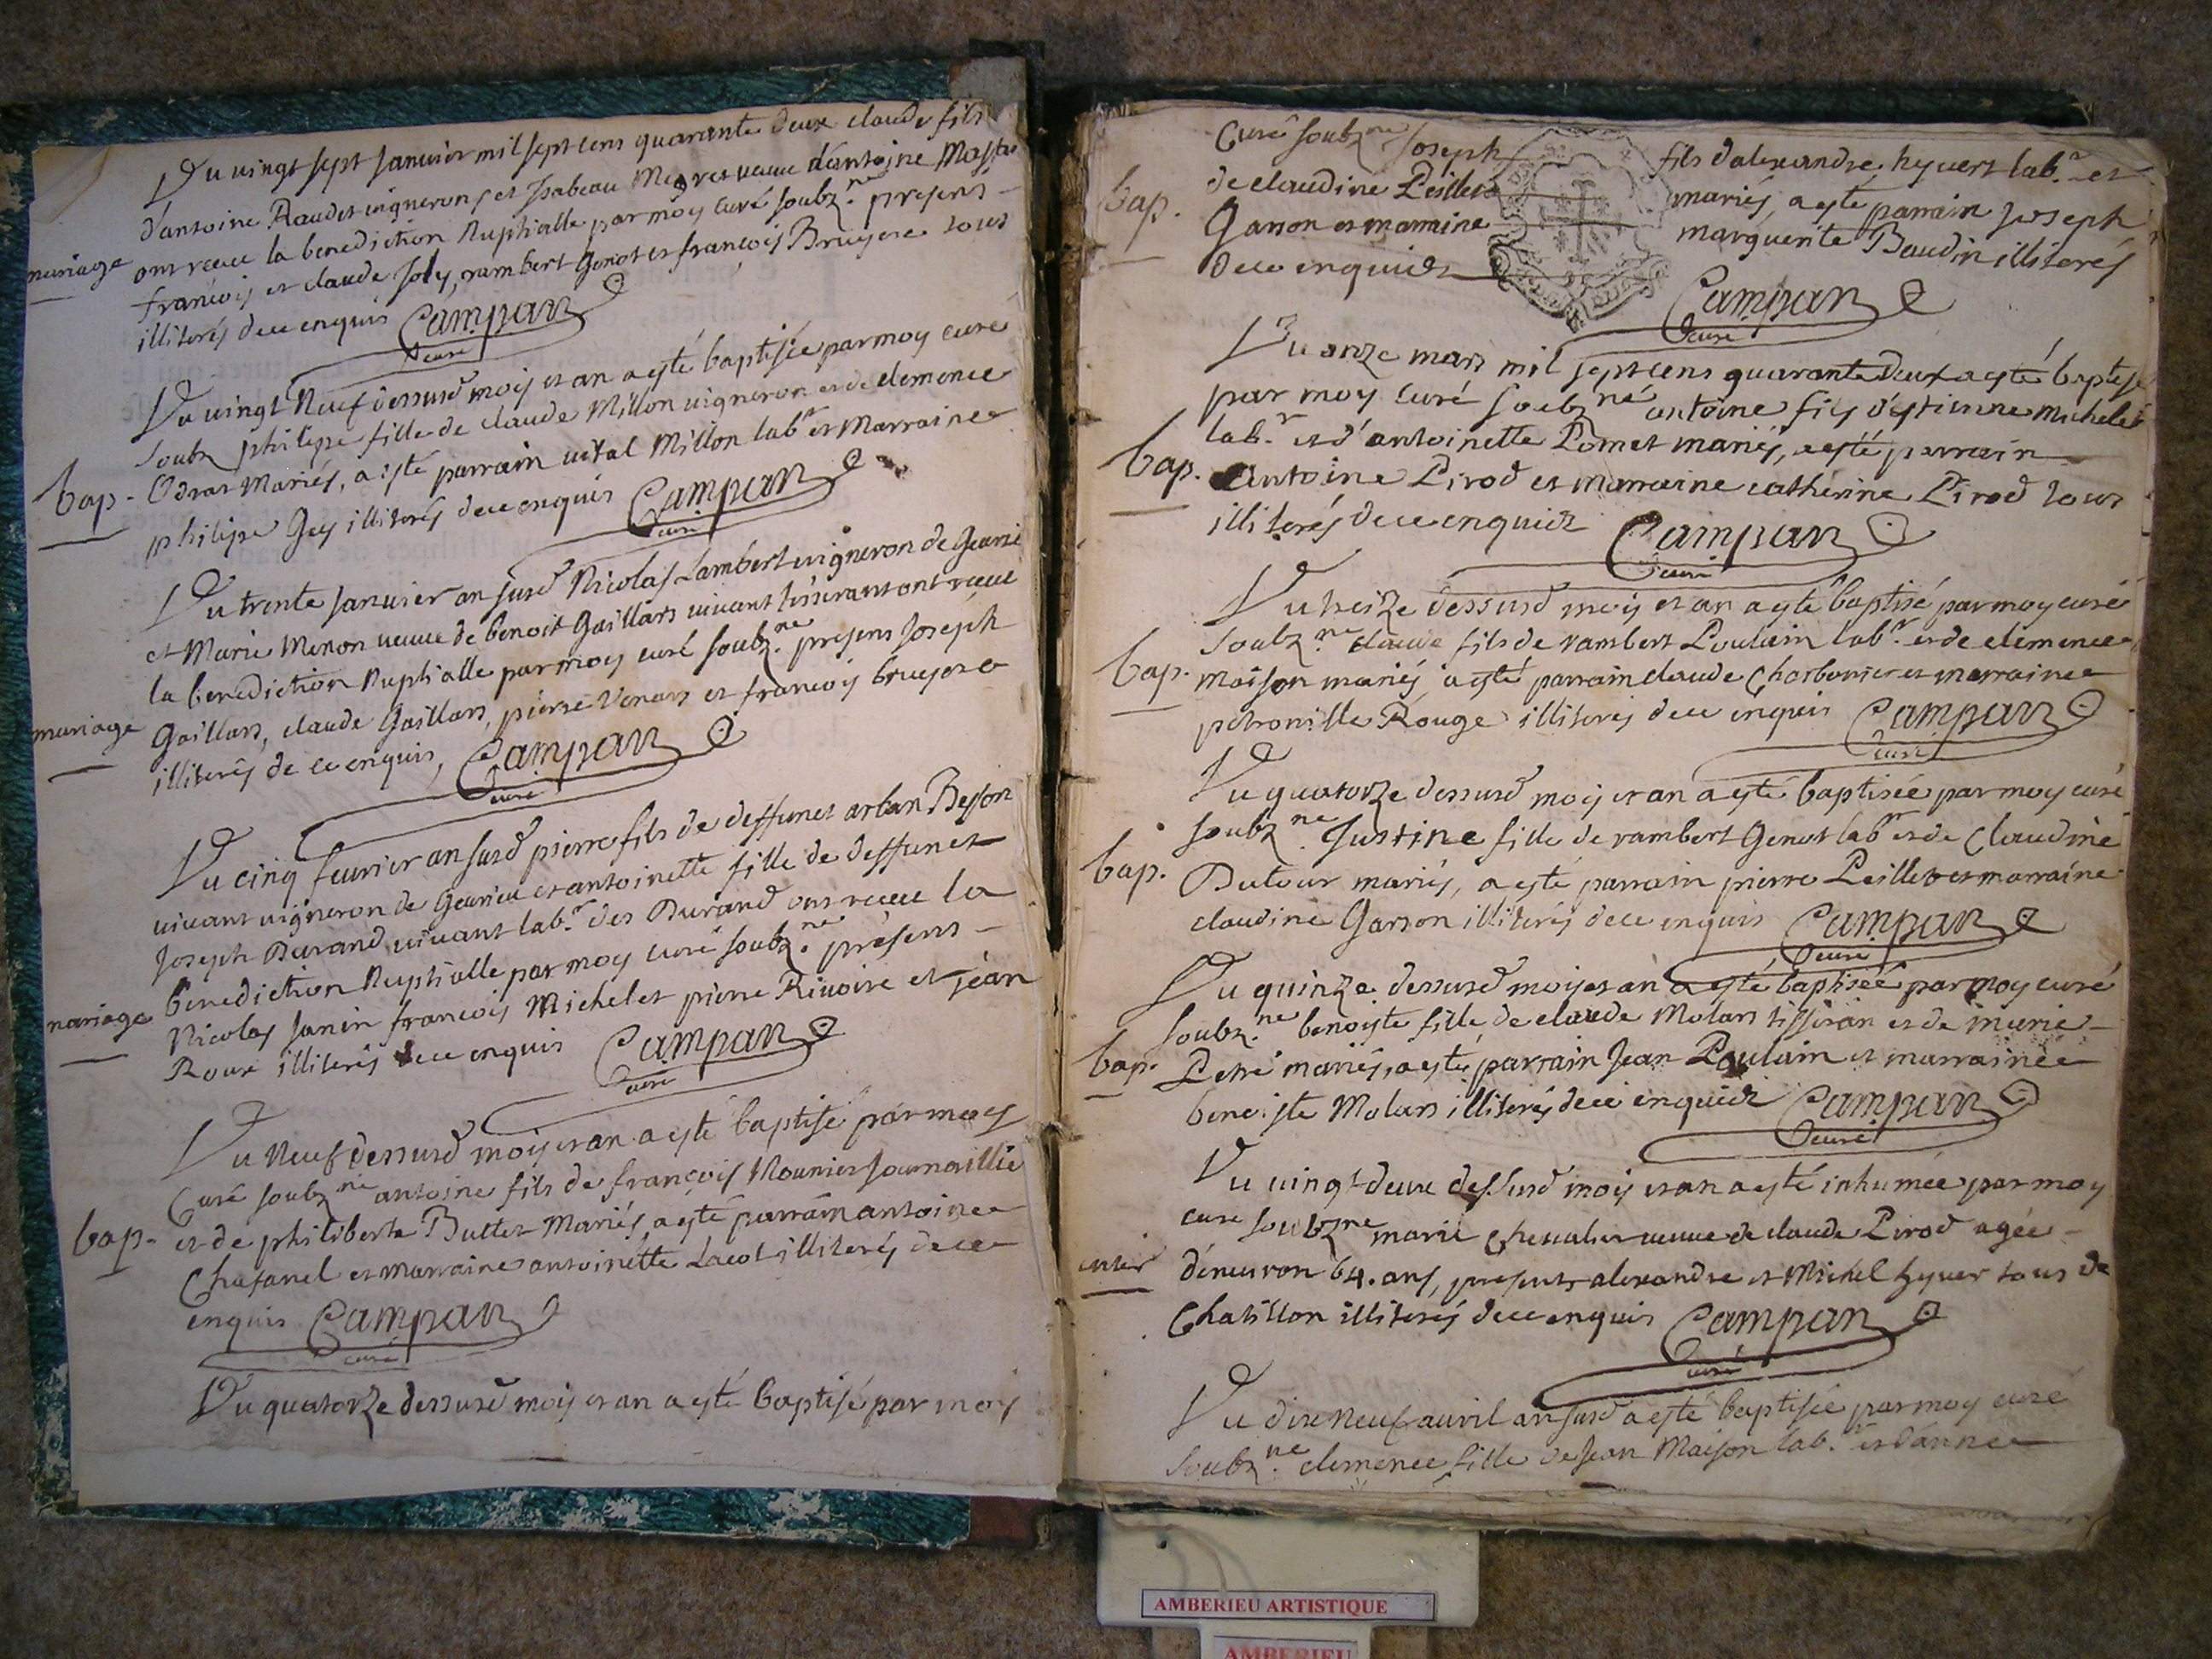 Du vingt sept Janvier mil sept cens quarante deux claude fils
d'antoine Raudet vigneron et Isabeau Megret veuve d'antoine
mariage
ont receu la benediction Nuptialle par moy curé soubz.ne presens
francois et claude Joly, rambert Genot et françois Bruyere tous
illiterés de ce enquis Campan
curé
Du vingt Neuf dessusd mois et an a esté baptisée par moy curé
soubz philipe fille de claude Millon vigneron et de clemence
bap.
Odras Mariés, a esté parrain vital Millon labr et Marraine
philipe Gey illiterés de ce enquis Campan
curé
Du trente Janvier an susd Nicolas Lambert vigneron de Gevrie
et Marie Menon veuve de benoit Gaillars vivant tisserant ont receue
la benediction Nuptialle par moy curé soubz.ne presens Joseph
mariage
Gaillars, claude Gaillars, pierre Venars et francois bruyere
illiterés de ce enquis, Campan
curé
Du cinq fevrier an susd pierre fils de deffunct arban Besson
vivant vigneron de Gevrieu et antoinette fille de deffunct
Joseph Durand vivant lab.r des Durand ont receue la
benediction Nuptialle par moy curé soubz.ne présens
mariage
Nicolas Janin francois Michelet pierre Rivoire et Jean
Roux illiterés de ce enquis Campan
curé
Du Neuf dessusd mois et an a esté baptisé par moy
Curé soubz.ne antoine fils de françois Mounier Journaillie
bap.
et de philiberte Buttet Mariés, a esté parrain antoine
Chafanel et marraine antoinette Lacot illiterés de ce
enquis Campan
curé
Du quatorze dessusd mois et an a esté baptisé par moy
Curé soubz.ne Joseph fils d'alexandre hyvert lab.r et
bap.
de claudine Peillet mariés, a esté parrain Joseph
Garson et marraine marguerite Baudin illiterés
de ce enquids
Campan
curé
Du onze mars mil sept cens quarante deux a esté baptisé
par moy curé soubz.né antoine fils d'estienne michelet
lab.r et d'antoinette Pomet mariés, a esté parrain
bap.
Antoine Pirod et marraine catherine Pirod tous
illiterés de ce enquids Campan
curé
Du treize dessusd mois et an a esté baptisé par moy curé
soubz.ne claude fils de rambert Poulain lab.r et de clemence
bap.
maison mariés, a esté parrain claude Charbonier et marraine
petronille Rouge illiterés de ce enquis Campan
curé
Du quatorze dessusd mois et an a esté baptisée par moy curé
soubz.ne Justine fille de rambert Genot labr et de Claudine
bap.
Dutour mariés, a esté parrain pierre Peillet et marraine
claudine Garson illiterés de ce enquis Campan
curé
Du quinze dessusd mois et an a esté baptisée par moy curé
soubz.ne benoiste fille de claude Molars tisseran et de marie
bap.
Petri mariés, a esté parrain Jean Poulain et marraine
benoiste Molars illiterés de ce enquids Campan
curé
Du vingt deux dessusd mois et an a esté inhumée par moy
curé soubz.ne marie Chevalier veuve de claude Pirod agée
enter
d'environ 64. ans, presents alexandre et Michel hyver tous de
Chatillon illiterés de ce enquis Campan
curé
Du dix neuf avril an susd a esté baptisée par moy curé
soubz.ne clemence fille de Jean Maison lab.r et d'anne
AMBERIEU ARTISTIQUE
AMBERIEU